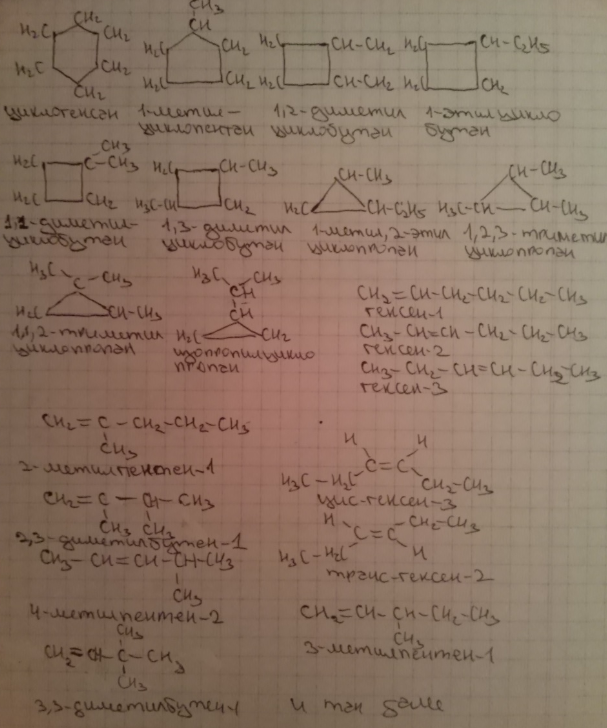 CH₂
H₂C CH₂
H₂C CH₂
CH₂
циклогенсан
CH₃
CH
H₂C CH₂
H₂C CH₂
1-метил-
циклопентан
H₂C CH-CH₂
H₂C CH-CH₂
1,2-диметил
циклобутан
H₂C CH-C₂H₅
H₂C CH₂
1-этилцикло
бутан
CH₃
H₂C C-CH₃
H₂C CH₂
1,1-диметил-
циклобутан
H₂C CH-CH₃
H₃C-CH CH₂
1,3-диметил
циклобутан
CH-CH₃
H₂C CH-C₂H₅
1-метил,2-этил
циклопропан
CH-CH₃
H₃C-CH CH-CH₃
1,2,3-триметил
циклопропан
H₃C C CH₃
H₂C CH-CH₃
1,1,2-триметил
циклопропан
H₃C CH₃
CH
CH
H₂C CH₂
изопропилцикло
пропан
CH₂=CH-CH₂-CH₂-CH₂-CH₃
гексен-1
CH₃-CH=CH-CH₂-CH₂-CH₃
гексен-2
CH₃-CH₂-CH=CH-CH₂-CH₃
гексен-3
CH₂=C-CH₂-CH₂-CH₃
CH₃
2-метилпентен-1
H H
C=C
H₃C-H₂C CH₂-CH₃
цис-гексен-3
CH₂=C-CH-CH₃
CH₃ CH₃
2,3-диметилбутен-1
H CH₂-CH₃
C=C
H₃C-H₂C H
транс-гексен-2
CH₃-CH=CH-CH-CH₃
CH₃
4-метилпентен-2
CH₂=CH-CH-CH₂-CH₃
CH₃
3-метилпентен-1
CH₃
CH₂=CH-C-CH₃
CH₃
3,3-диметилбутен-1
и так далее